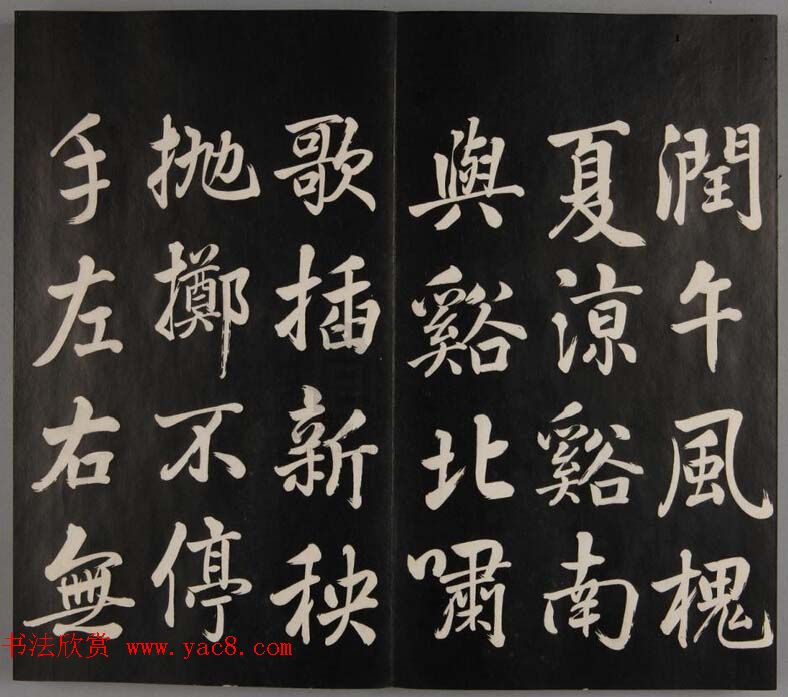 潤午風槐
夏涼谿南
與谿北嘯
歌插新秧
拋擲不停
手左右無
书法欣赏 www.yac8.com